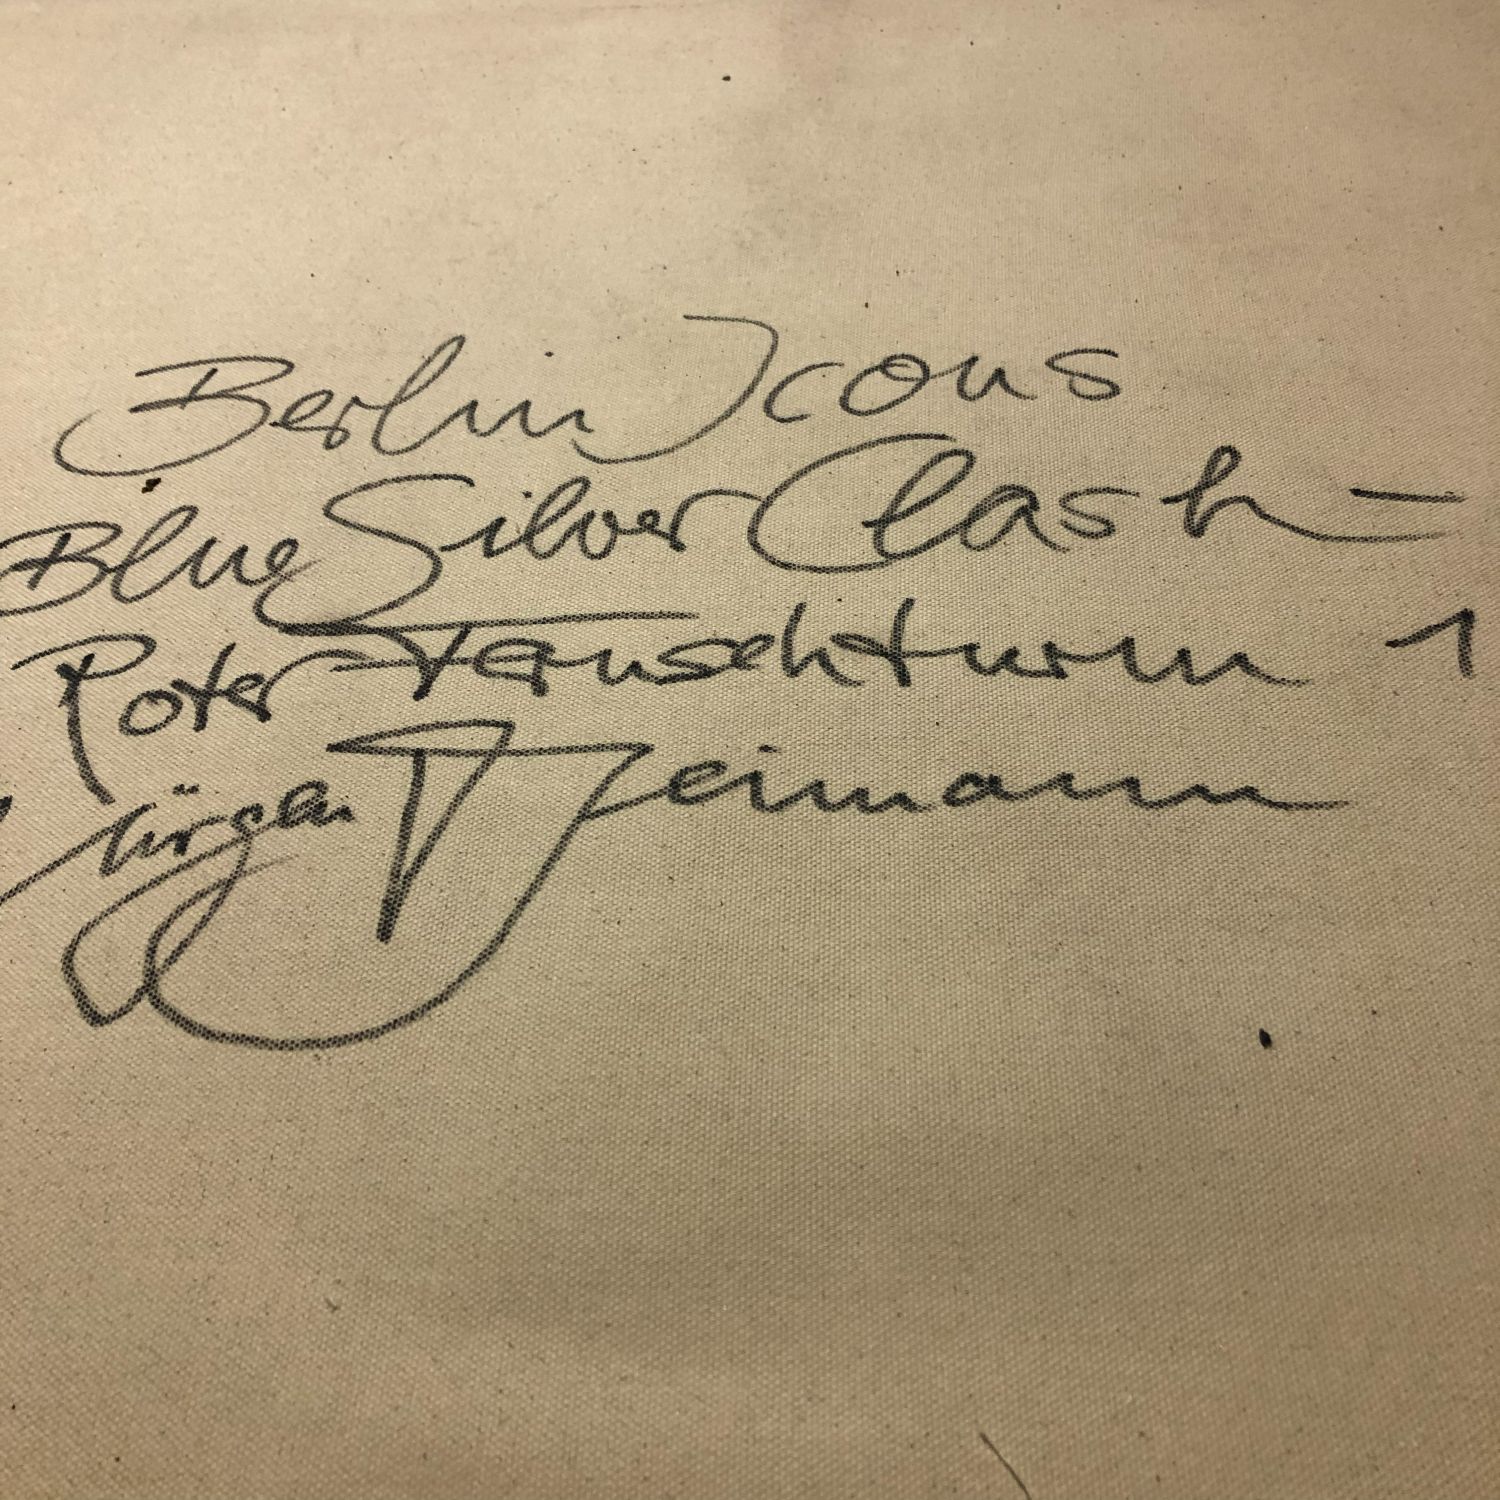 Berlin Icons
Blue Silver Clash –
Roter Fernsehturm 1
Jürgen Heimann